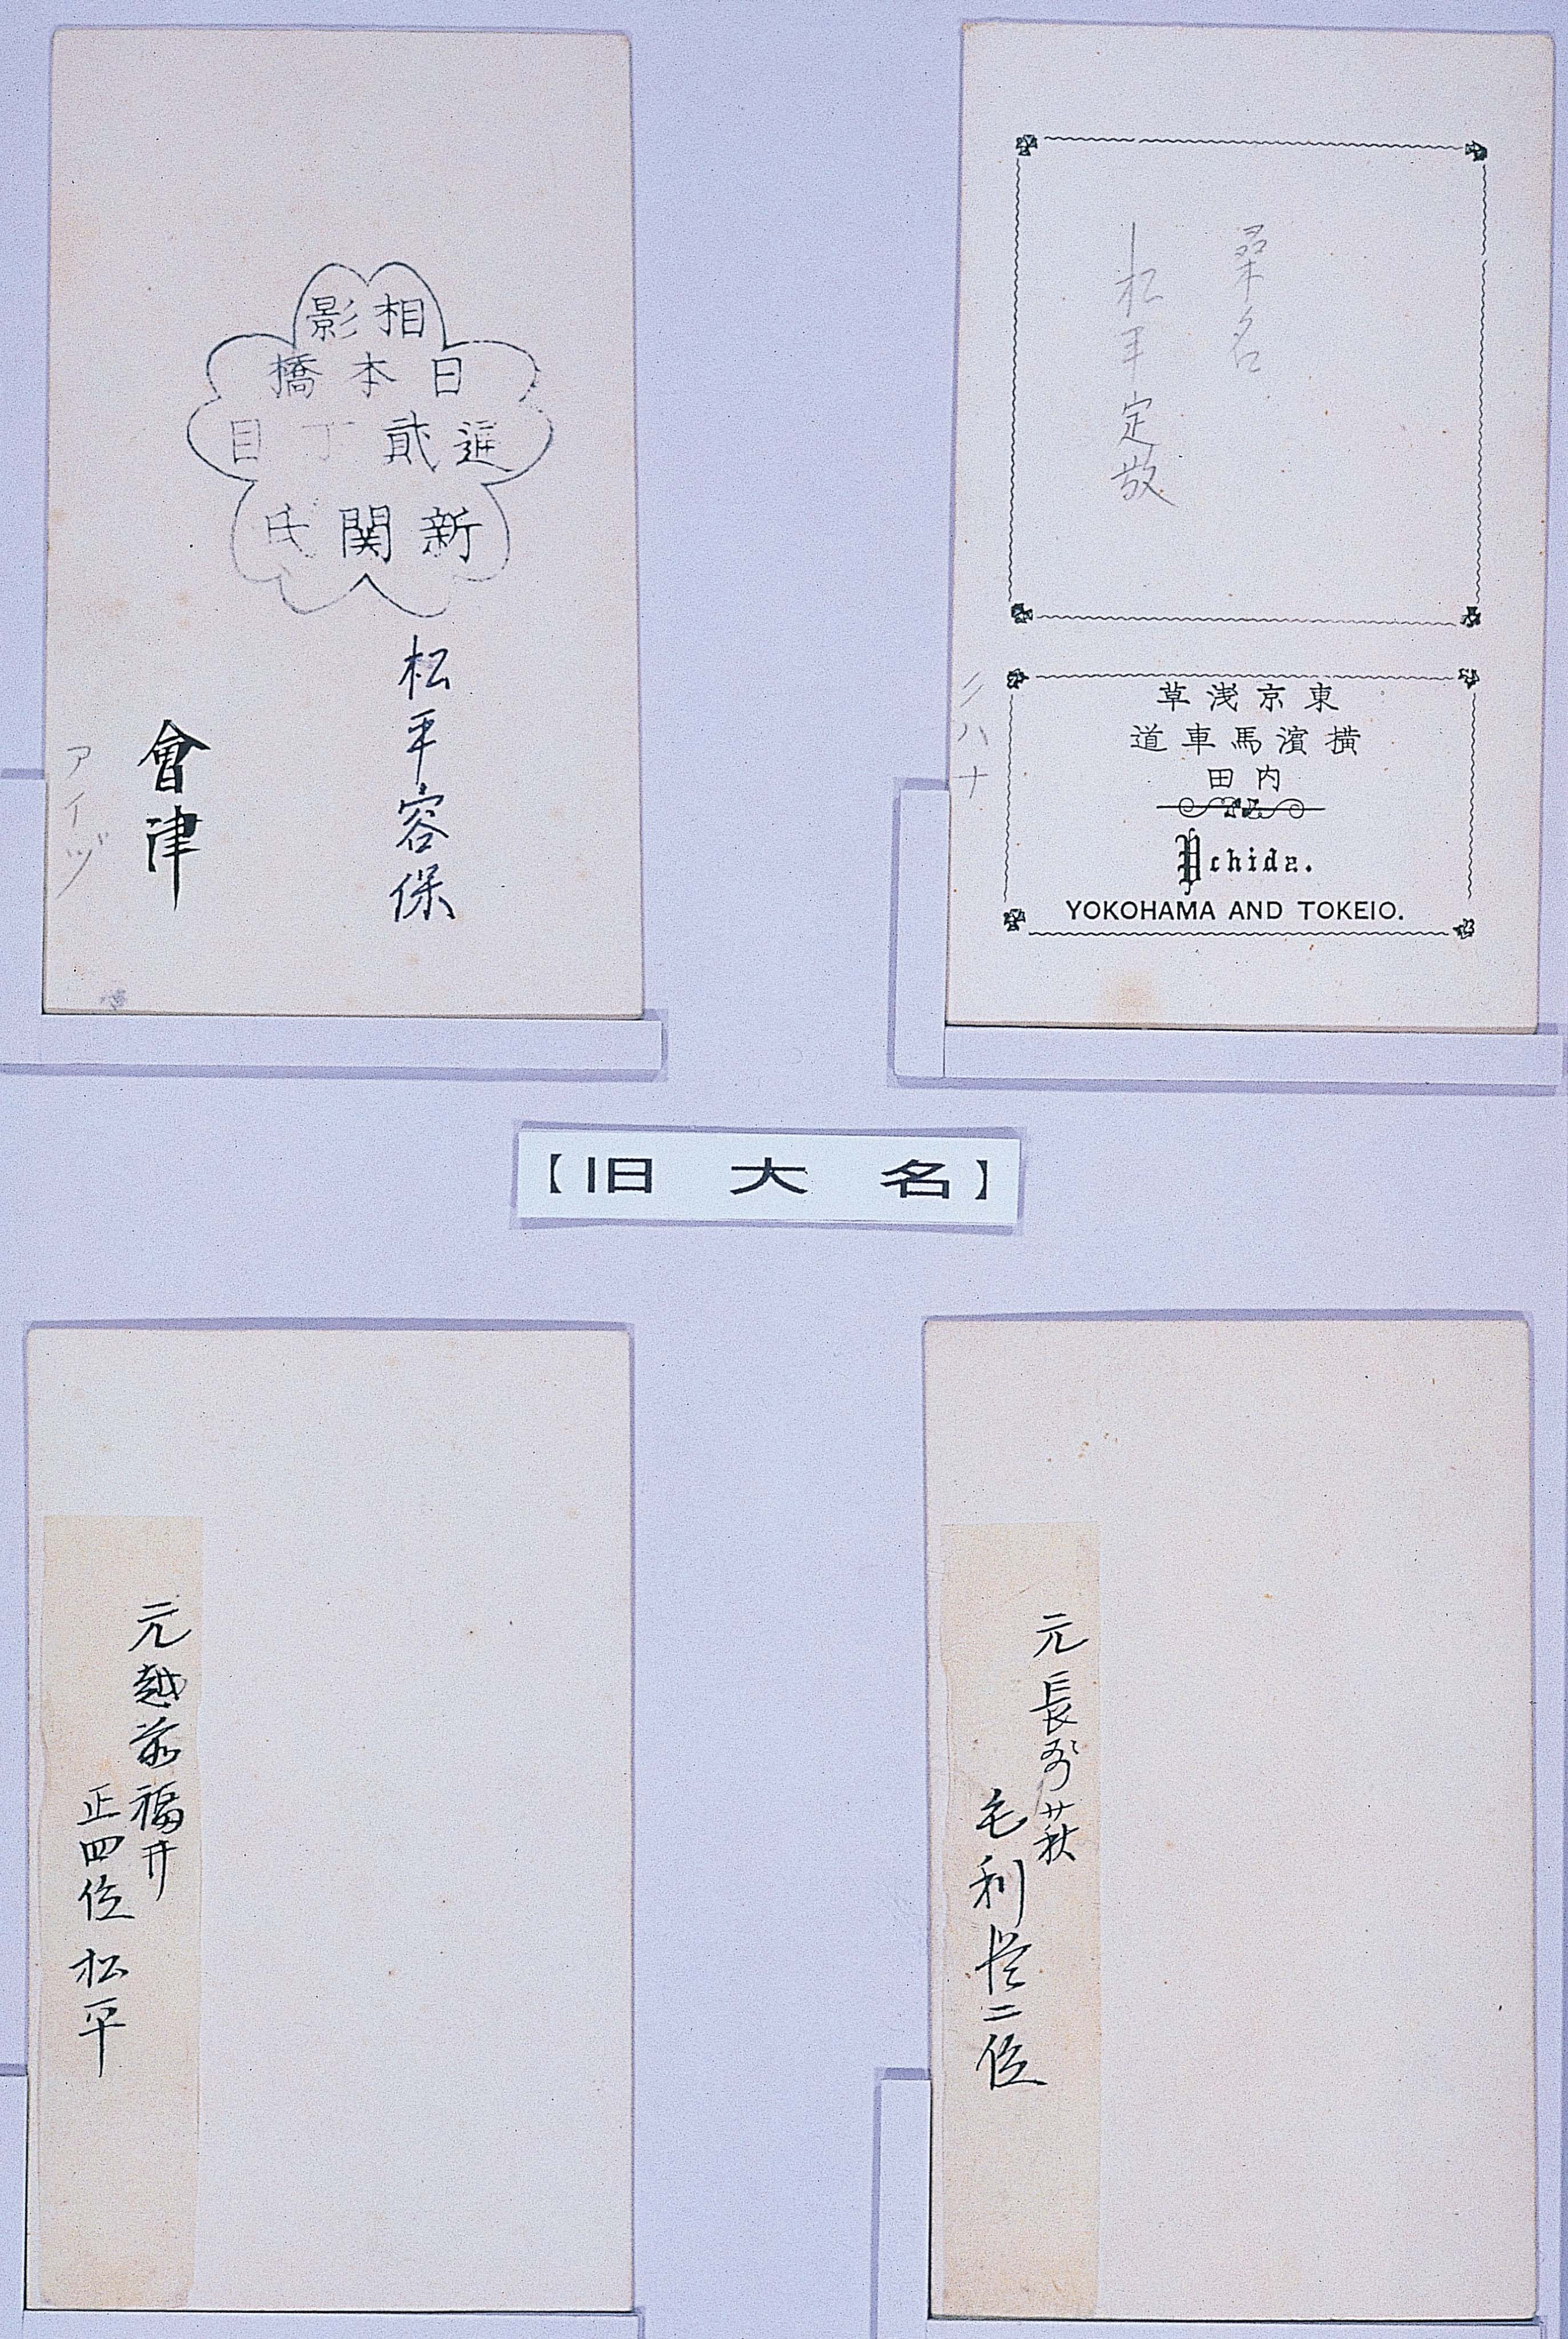 相影
日本橋
通貳丁目
新関氏
松平容保
會津
アイヅ
桑名
松平定敬
東京浅草
横濱馬車道
内田
Uchida.
YOKOHAMA AND TOKEIO.
【旧大名】
元越前福井
正四位 松平
元長州萩
毛利従二位